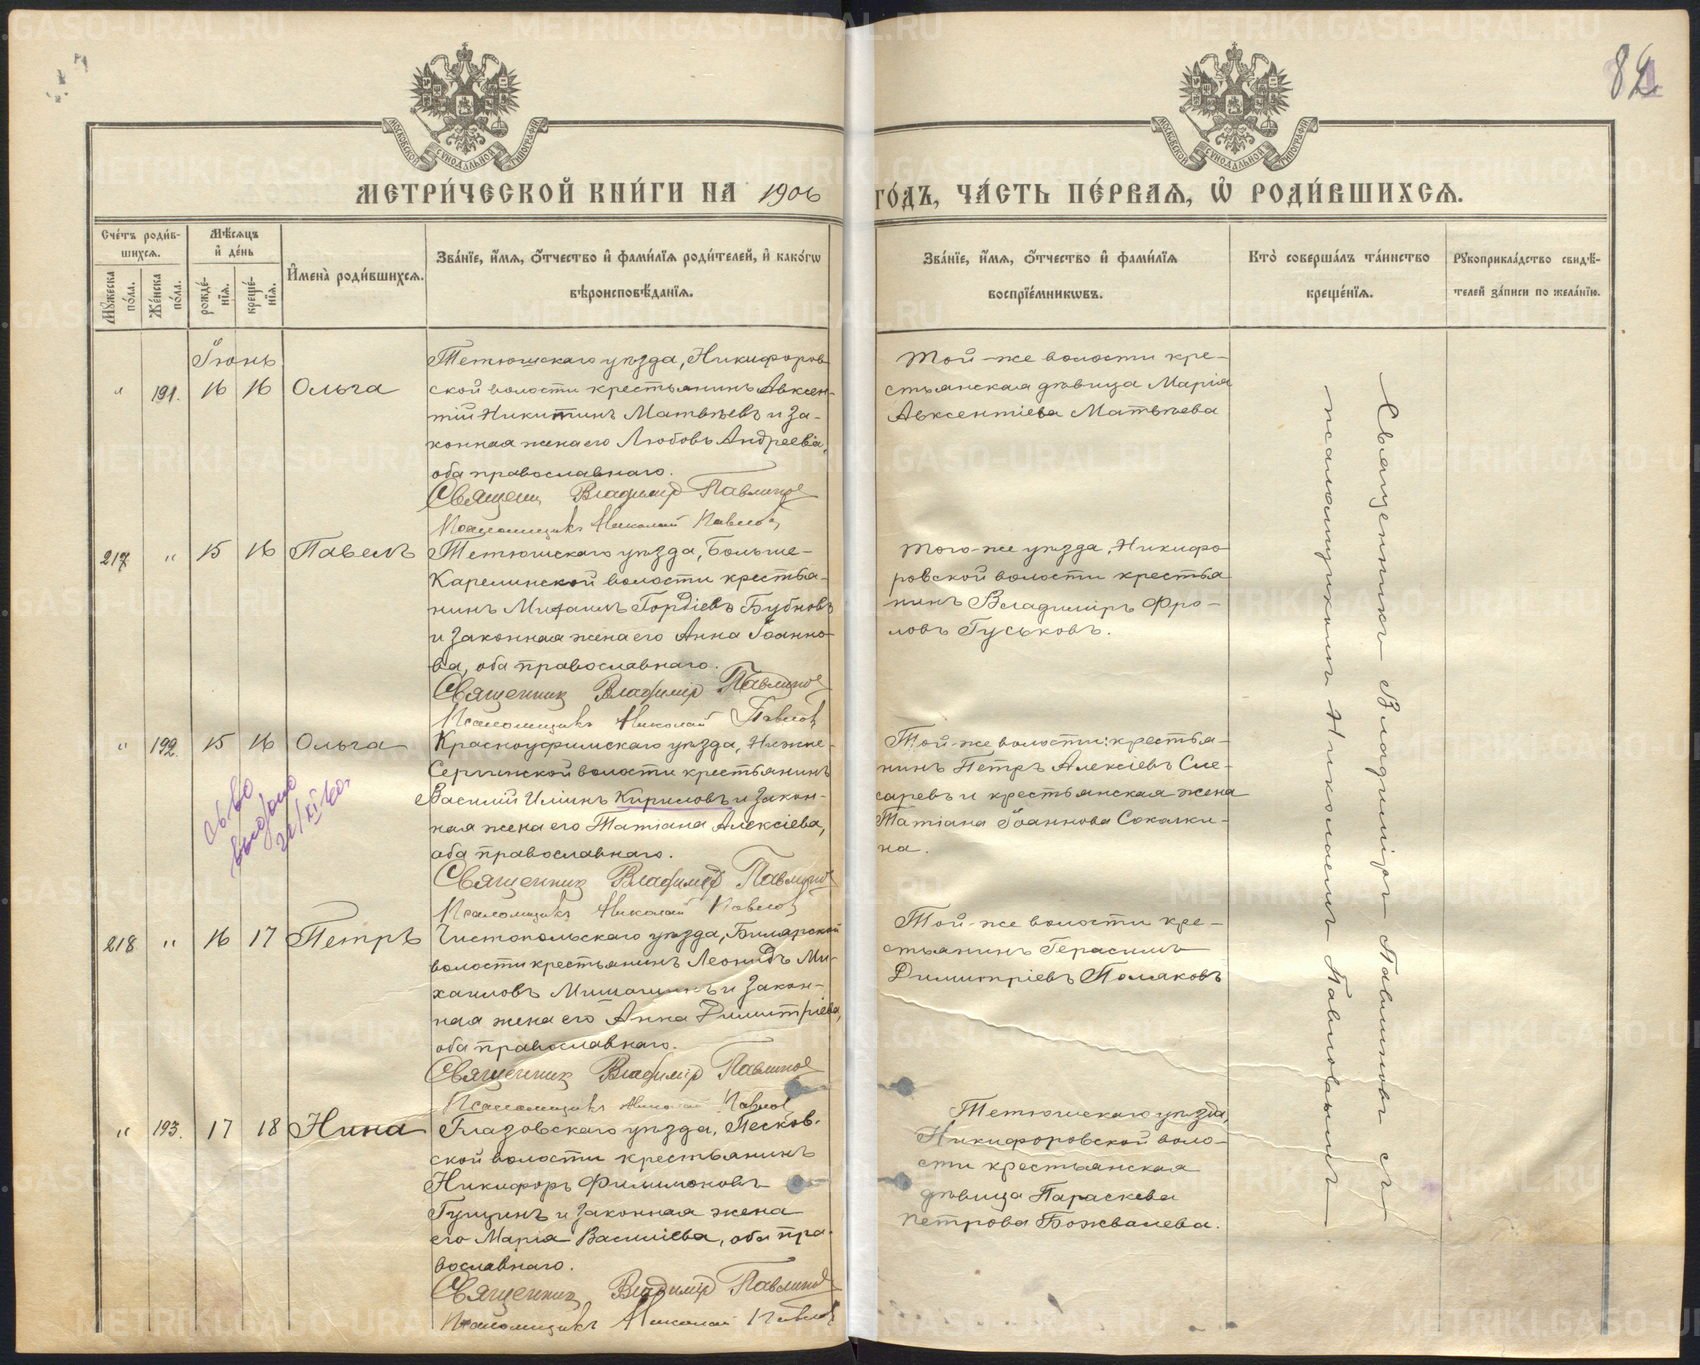 82
МЕТРИ́ЧЕСКОЙ КНИ́ГИ НА 1906
ГО́ДЪ, ЧА́СТЬ ПЕ́РВАЯ, Ѡ҆ РОДИ́ВШИХСѦ.
Сче́тъ роди́в-
шихсѧ.
Мꙋ́жеска по́ла.
Же́нска по́ла.
Мѣ́сѧцъ
и҆ де́нь
рожде́-
нїѧ.
креще́-
нїѧ.
И҆мена̀ роди́вшихсѧ.
Зва́нїе, и҆́мѧ, ѻ҆́тчество и҆ фами́лїѧ роди́телей, и҆ како́гѡ
вѣроисповѣ́данїѧ.
Зва́нїе, и҆́мѧ, ѻ҆́тчество и҆ фами́лїѧ
воспрїе́мникѡвъ.
Кто̀ соверша́лъ та́инство
креще́нїѧ.
Рꙋкоприкла́дство свидѣ́-
телей за́писи по жела́нїю.
Іюнь
" 191. 16 16 Ольга
Тетюшскаго уѣзда, Никифоров
ской волости крестьянинъ Авксен-
тій Никитинъ Матвѣевъ и за-
конная жена его Любовь Андреева,
оба православнаго.
Священ. Владимір Павлинов
Псаломщикъ Николай Павлов
Той-же волости кре-
стьянская дѣвица Марія
Авксентіева Матвѣева
217 " 15 16 Павелъ
Тетюшскаго уѣзда, Больше-
Карелинской волости крестья-
нинъ Михаилъ Гордіевъ Бубновъ
и законная жена его Анна Іоанно-
ва, оба православнаго.
Священник Владимір Павлинов
Псаломщикъ Николай Павлов
Того-же уѣзда, Никифо
ровской волости крестья
нинъ Владиміръ Фро-
ловъ Гуськовъ.
" 192. 15 16 Ольга
св-во
выдано
21/XI 60г
Красноуфимскаго уѣзда, Нижне-
Сергинской волости крестьянинъ
Василій Илiинъ Кириловъ и закон-
ная жена его Татіана Алексіева,
оба православнаго.
Священник Владимір Павлинов
Псаломщикъ Николай Павлов
Той-же волости: крестья-
нинъ Петръ Алексіевъ Сле-
саревъ и крестьянская жена
Татіана Іоаннова Сокалки-
на.
218 " 16 17 Петръ
Чистопольскаго уѣзда, Билярской
волости крестьянинъ Леонидъ Ми-
хаиловъ Мишагинъ и закон-
ная жена его Анна Димитріева,
оба православнаго.
Священник Владимір Павлинов
Псаломщикъ Николай Павлов
Той-же волости кре-
стьянинъ Герасимъ
Димитріевъ Поляковъ
" 193. 17 18 Нина
Глазовскаго уѣзда, Песков-
ской волости крестьянинъ
Никифоръ Филимоновъ
Гущинъ и законная жена
его Марія Василіева, оба пра-
вославнаго.
Священник Владимір Павлинов
Псаломщикъ Николай Павлов
Тетюшскаго уѣзда,
Никифоровской воло-
сти крестьянская
дѣвица Параскева
Петрова Божвалева.
Священникъ Владиміръ Павлиновъ съ
псаломщикомъ Николаемъ Павловымъ